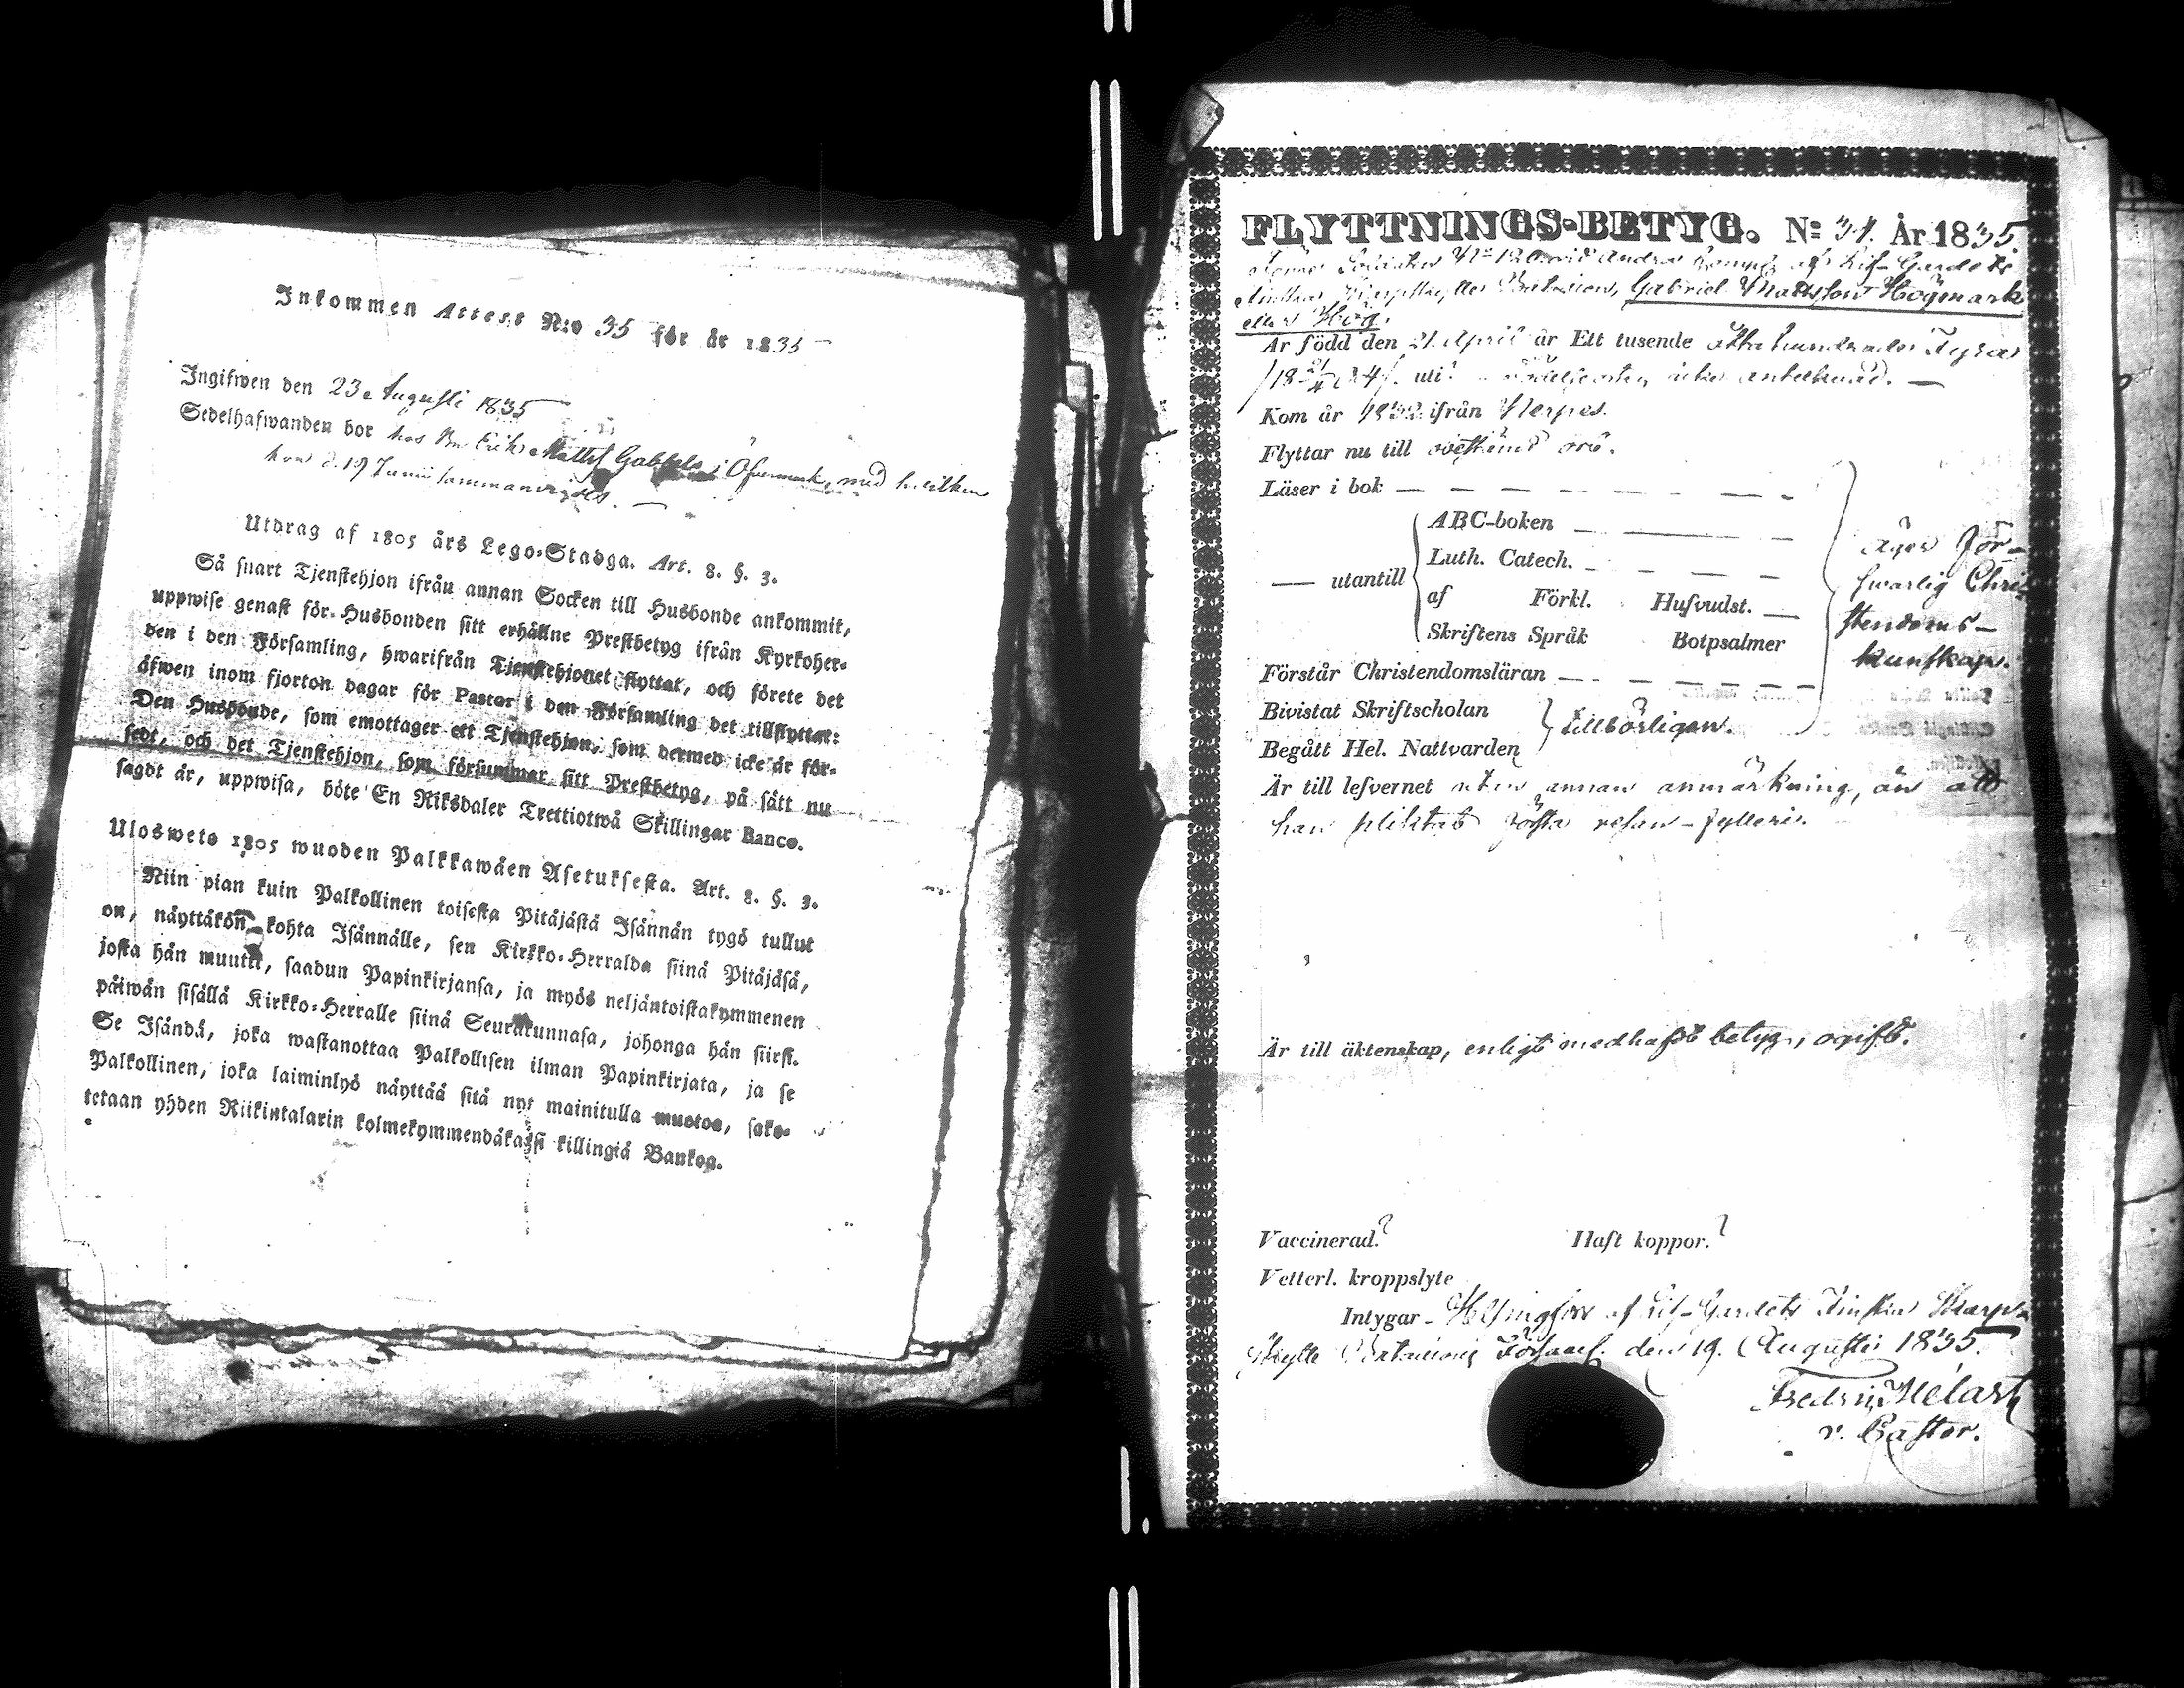 Inkommen Attest N:o 35 för år 1835
Ingifwen den 23 Augusti 1835
Sedelhafwanden bor hos Bn Erik Matts Gabbels i Öfvermark, med hvilken
hon d. 19 Junii sammanvigdes.
Utdrag af 1805 års Lego-Stadga. Art. 8. §. 3.
Så snart Tjenstehjon ifrån annan Socken till Husbonde ankommit,
uppwise genast för Husbonden sitt erhållne Prestbetyg ifrån Kyrkoher-
den i den Församling, hwarifrån Tjenstehjonet flyttat, och förete det
äfwen inom fjorton dagar för Pastor i den Församling det tillflyttat:
Den Husbonde, som emottager ett Tjenstehjon, som dermed icke är för-
sedt, och det Tjenstehjon, som försummar sitt Prestbetyg, på sätt nu
sagdt är, uppwisa, böte En Riksdaler Trettiotwå Skillingar Banco.
Uloswetö 1805 wuoden Palkkawäen Asetuksesta. Art. 8. §. 3.
Niin pian kuin Palkollinen toisesta Pitäjästä Isännän tygö tullut
on, näyttäkön kohta Isännälle, sen Kirkko-Herralda siinä Pitäjäsä,
josta hän muutti, saadun Papinkirjansa, ja myös neljäntoistakymmenen
päiwän sisällä Kirkko-Herralle siinä Seurakunnasa, johonga hän siirsi.
Se Isändä, joka wastanottaa Palkollisen ilman Papinkirjata, ja se
Palkollinen, joka laiminlyö näyttää sitä nyt mainitulla muotoa, sako-
tetaan yhden Riikintalarin kolmekymmendäkaksi killingiä Bankog.
FLYTTNINGS-BETYG. No 34. År 1835.
Soldaten No 12 vid Andra Kompg af Lif-Gardets
Finska Skarpskytte Bataillon, Gabriel Mattsson Högmark
eller Hög.
Är född den 21 April år Ett tusende åttahundrade Fyra
uti: födelseort icke antecknad.
Kom år 1832 ifrån Nerpes.
Flyttar nu till ort.
Läser i bok
utantill
ABC-boken
Luth. Catech.
af Förkl. Husvudst.
Skriftens Språk Botpsalmer
Äger för-
swarlig Chri-
stendoms-
kunskap.
Förstår Christendomsläran
Bivistat Skriftscholan
Begått Hel. Nattvarden
tillbörligen.
Är till lefvernet utan annan anmärkning, än att
han pliktat första resan fylleri.
Är till äktenskap, enligt medhaft betyg, ogift.
Vaccinerad? Haft koppor?
Vetterl. kroppslyte
Intygar Helsingfors af Lif-Gardets Finska Skarp-
skytte Bataillons Församl. den 19. Augusti 1835.
Fredric
v. Pastor.